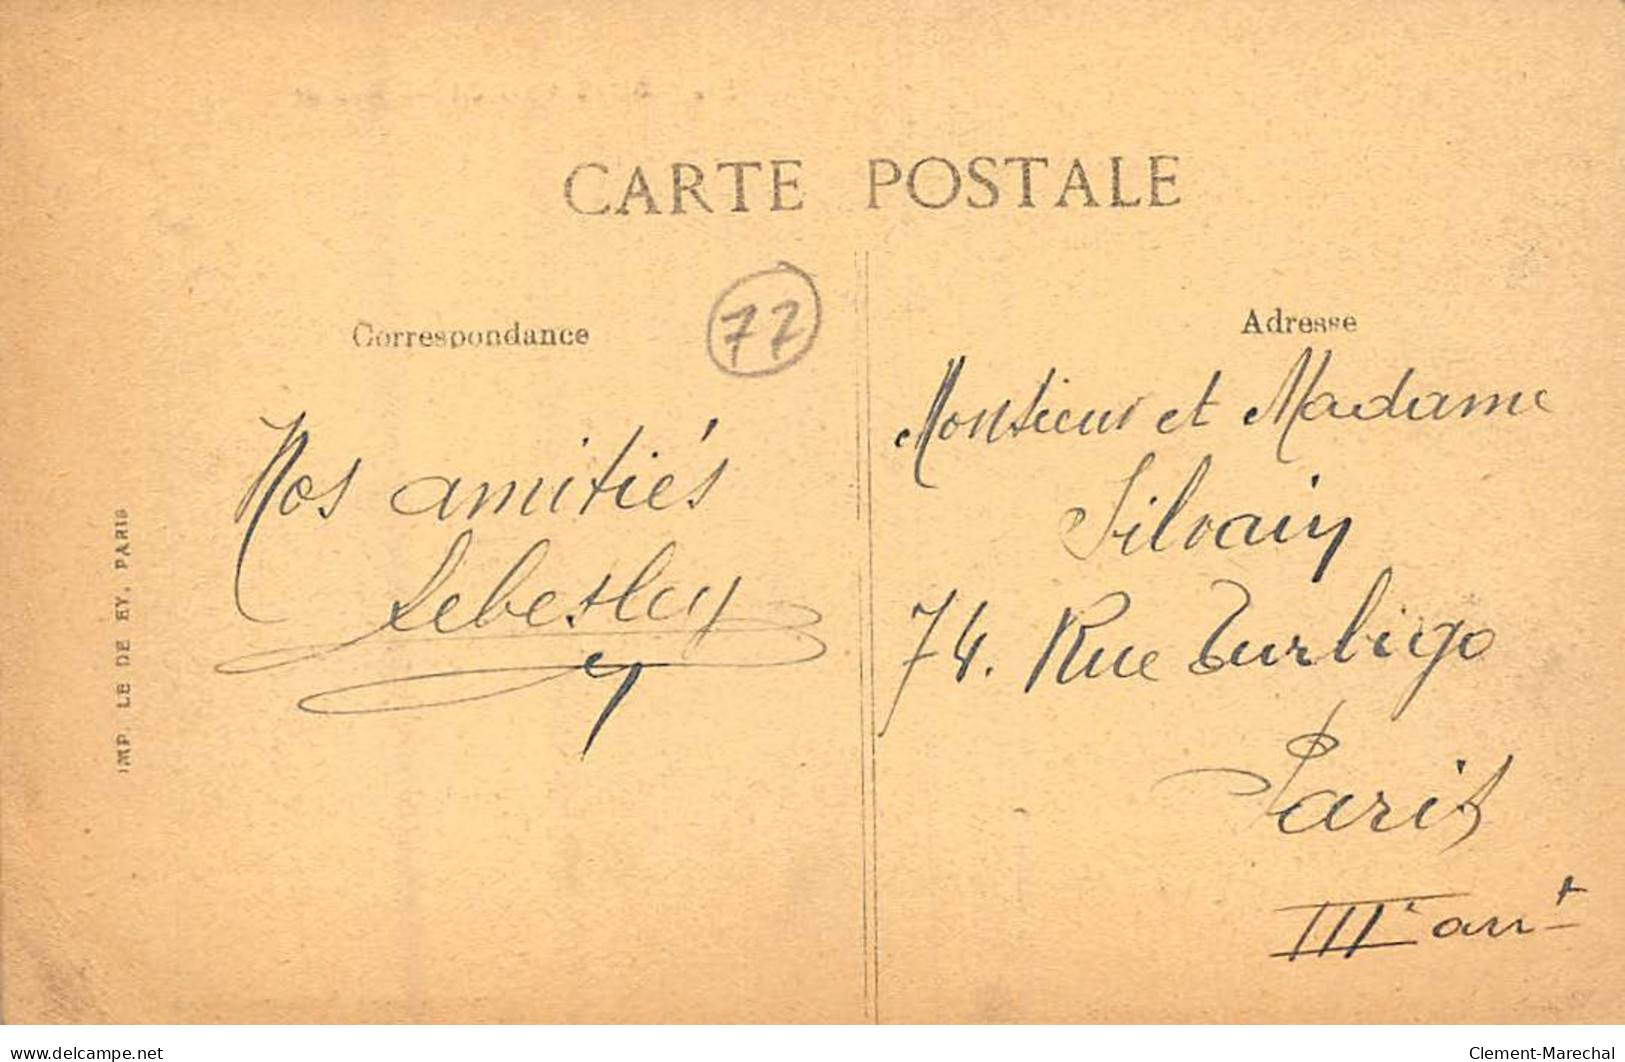 CARTE POSTALE
Correspondance
77
Adresse
Nos amitiés
Monsieur et Madame
Silvain
74. Rue Turbigo
Paris
IIIe arrt
IMP. LE DE EY, PARIS
delcampe.net
Clement-Marechal